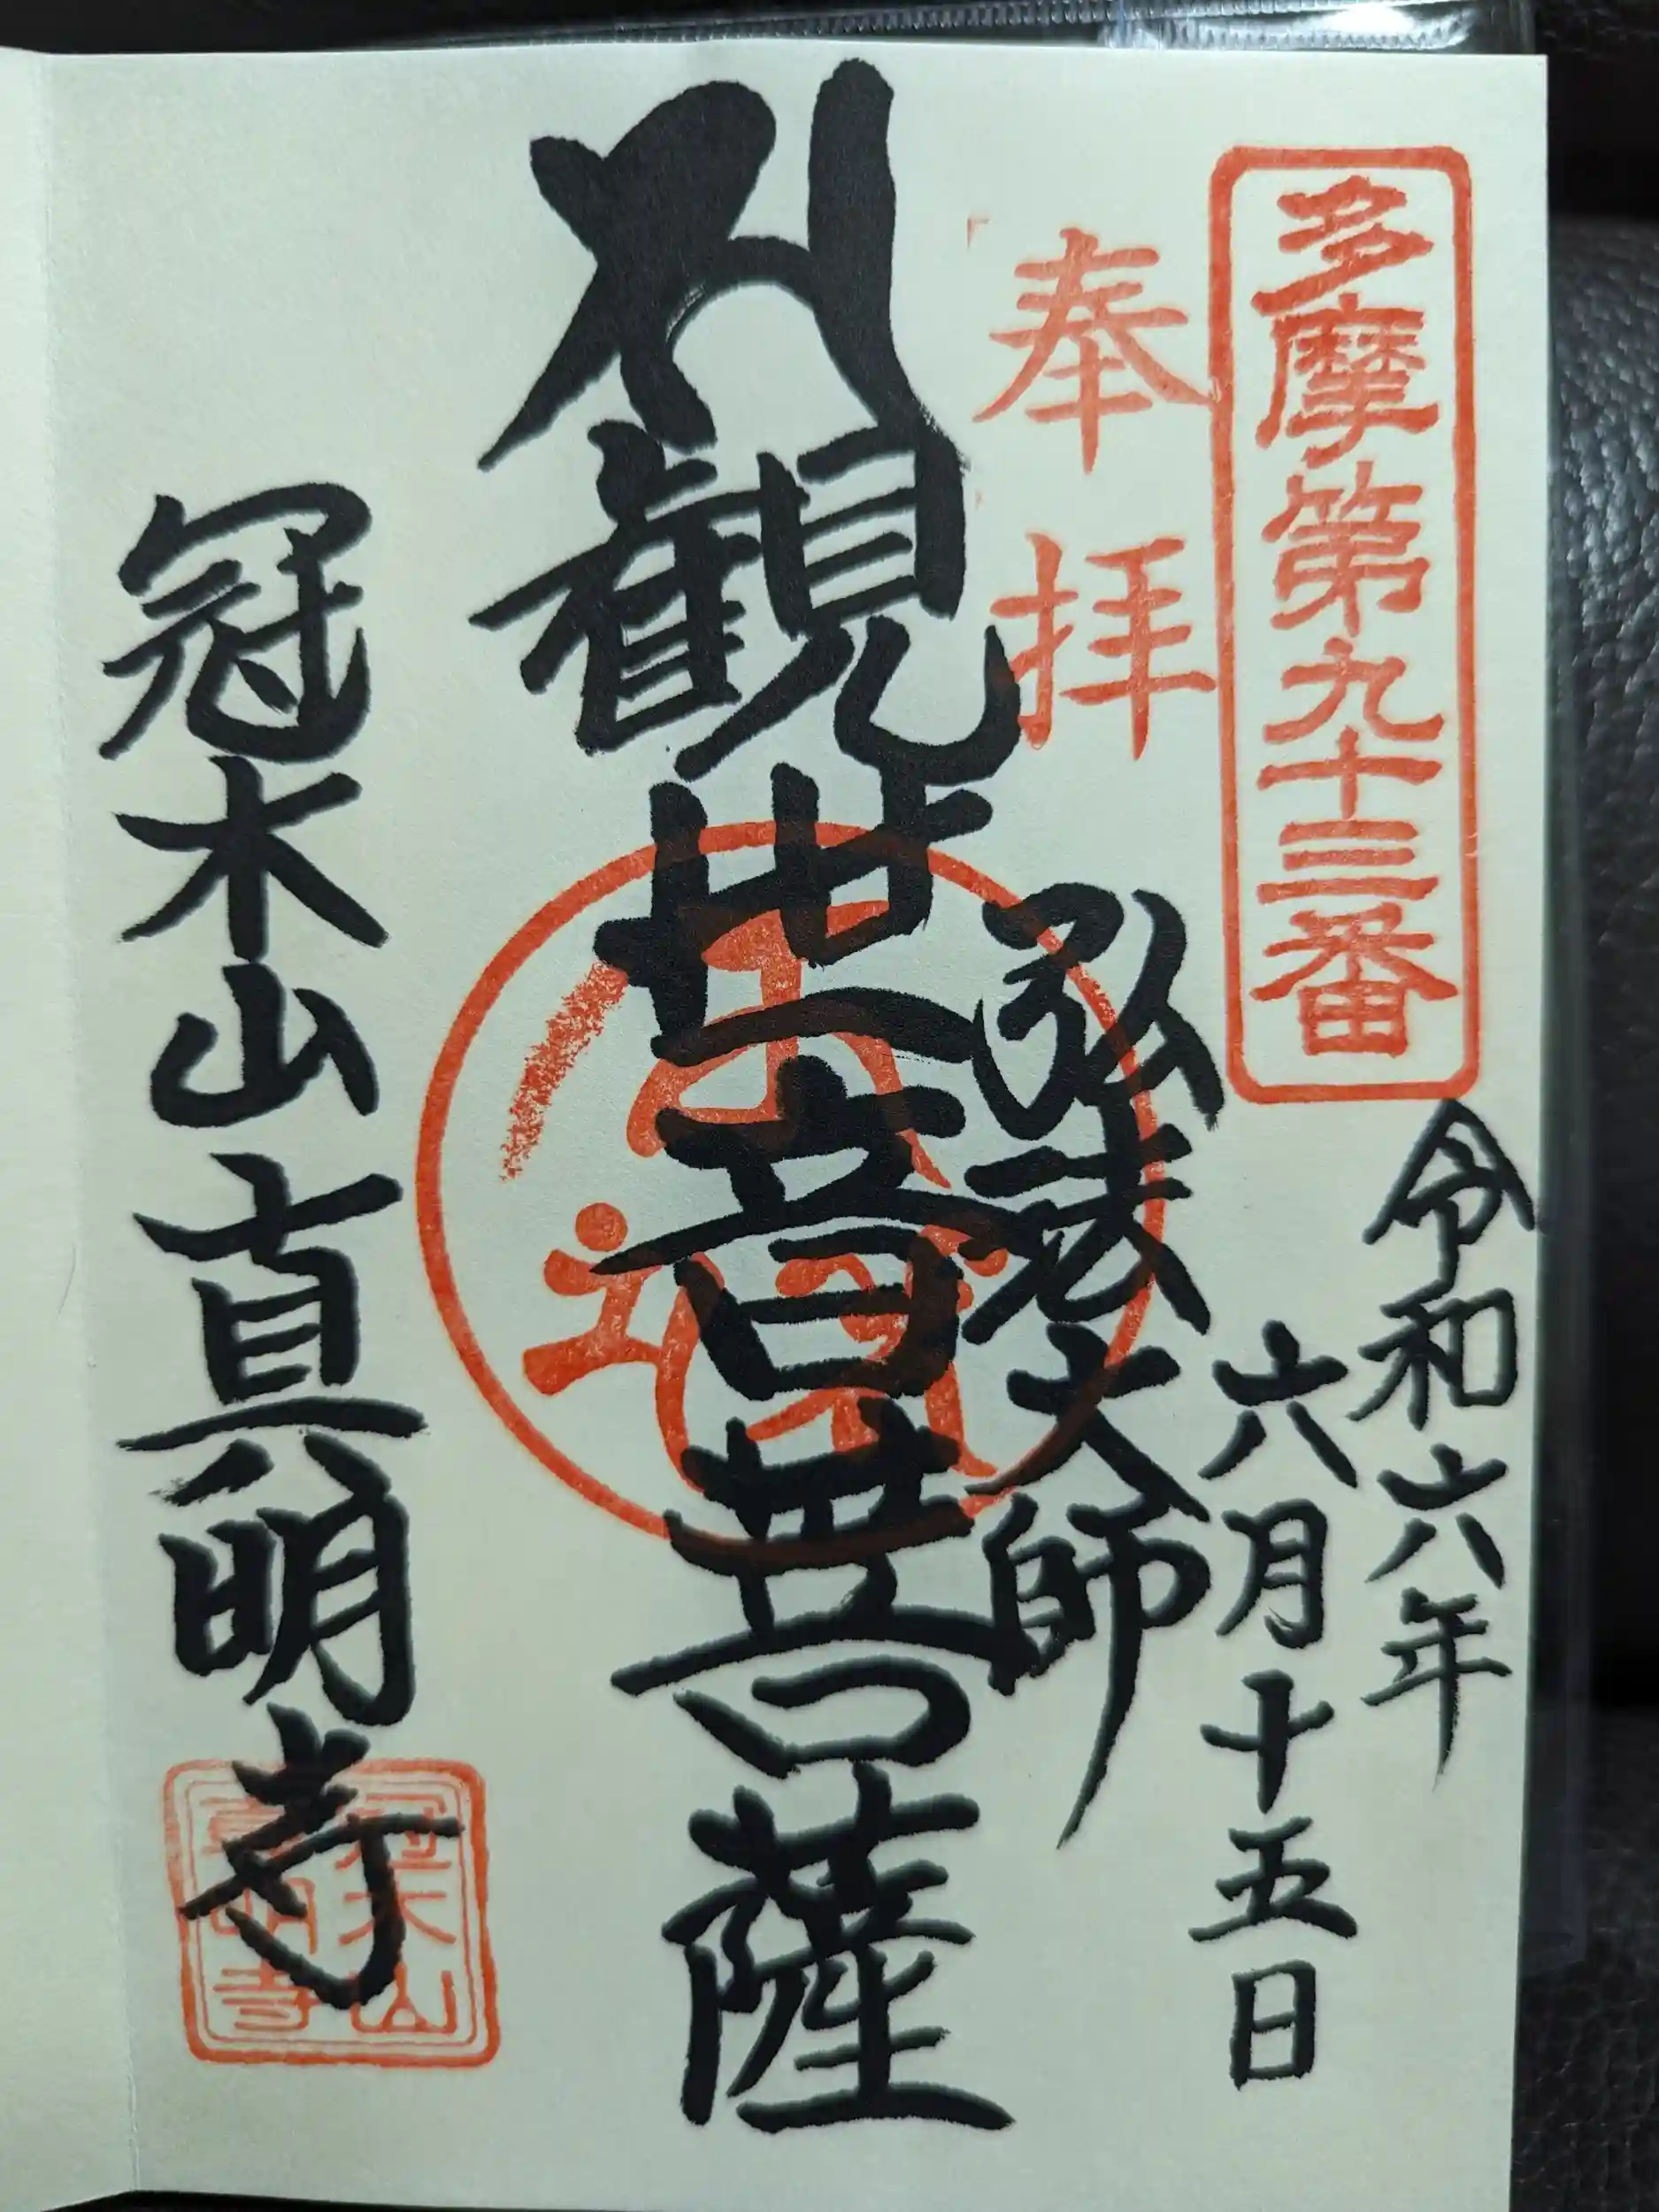 多摩第九十三番
令和六年
六月十五日
奉拝
弘法大師
観世音菩薩
冠木山真明寺
冠木山
真明寺